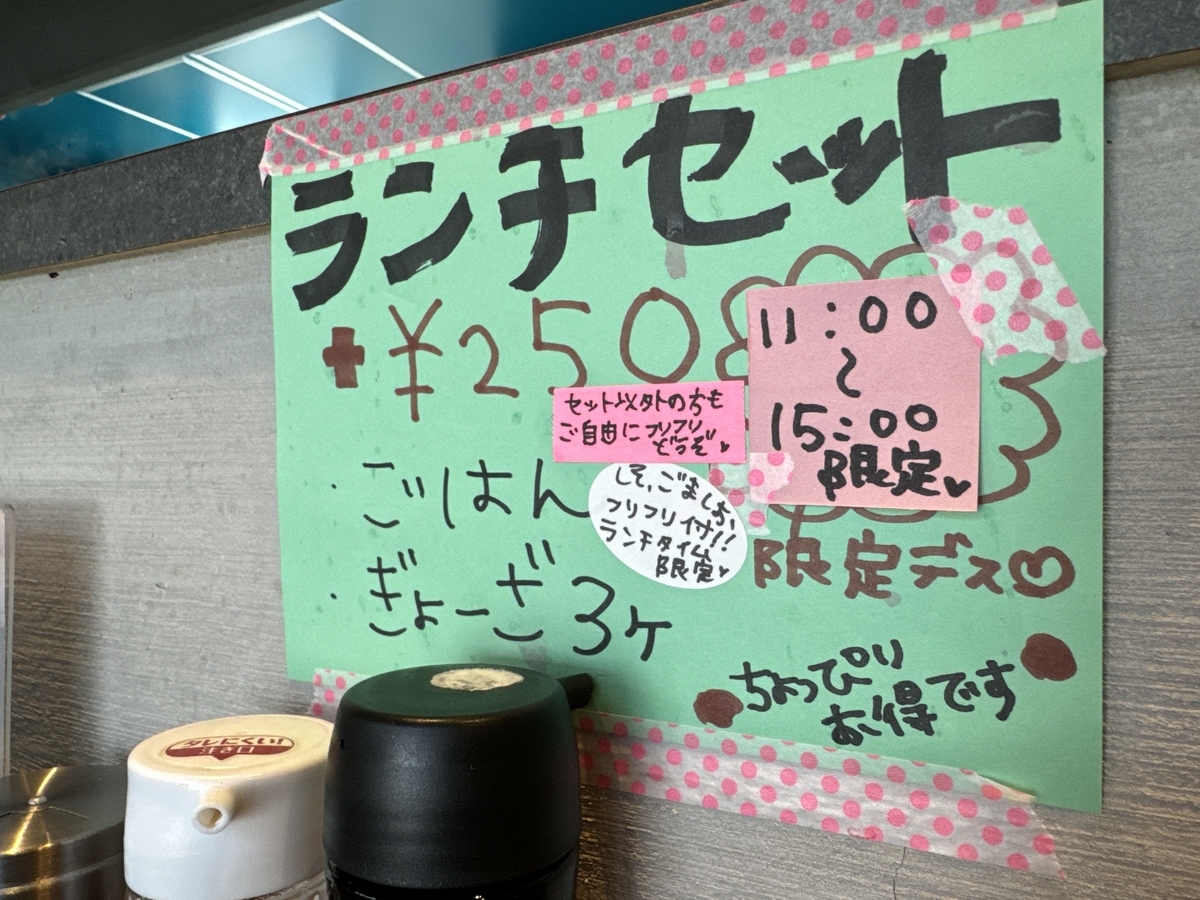 ランチセット
+¥250
11:00
〜
15:00
限定
セット以外の方も
ご自由にフリフリ
どうぞ
・ごはん
しそ、ごましお、
フリフリ付!!
ランチタイム
限定
限定デス
・ぎょーざ3ヶ
ちょっぴり
お得です
タレにくい!
注ぎ口